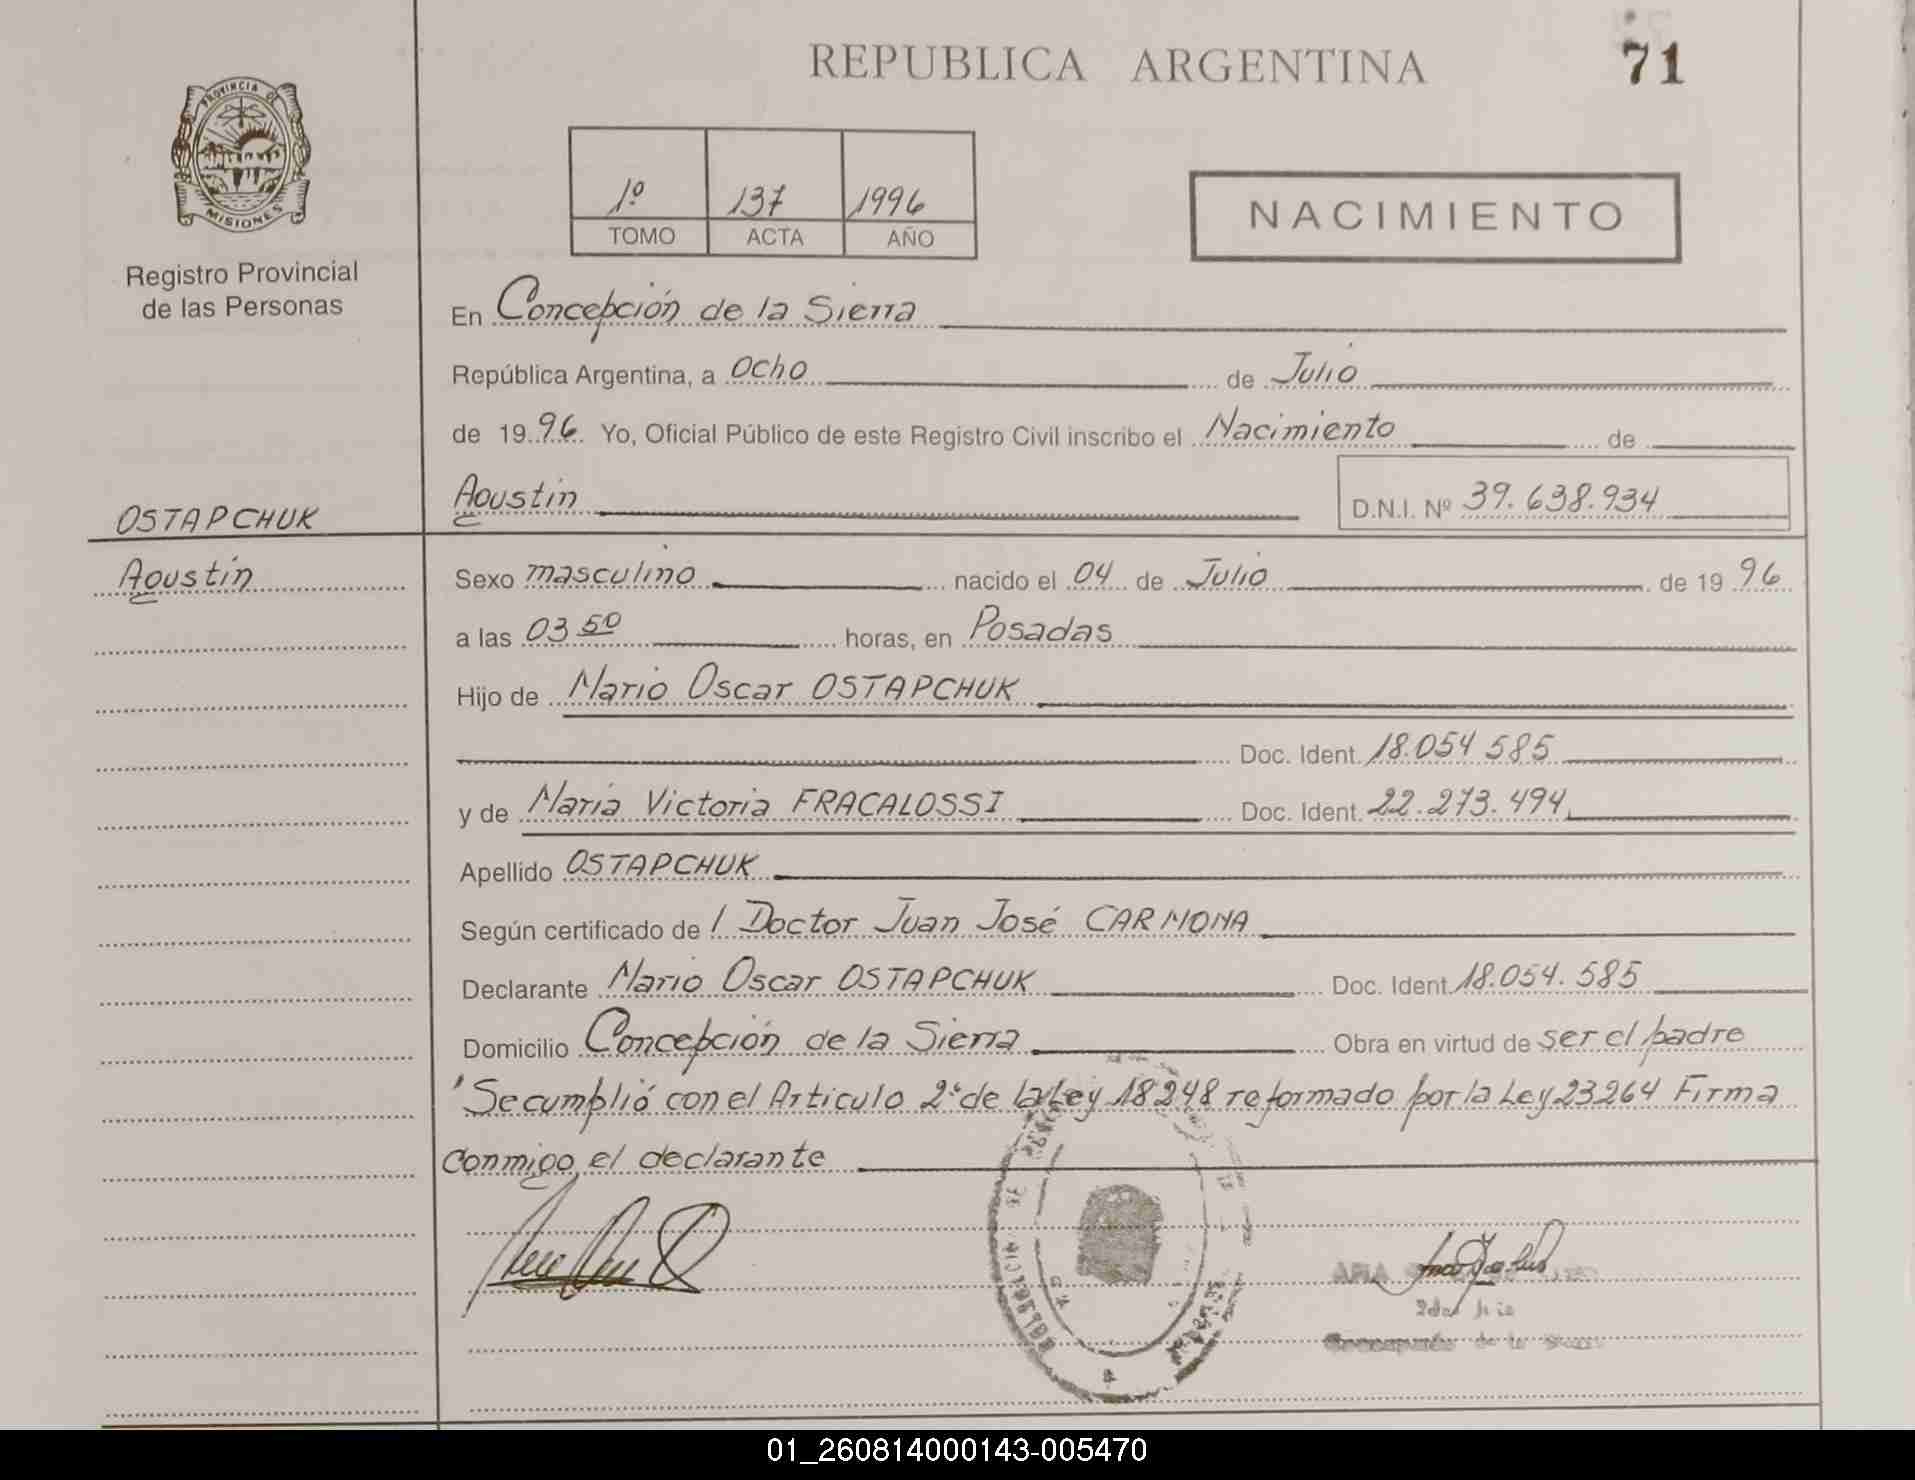 REPUBLICA ARGENTINA
71
PROVINCIA DE
MISIONES
Registro Provincial
de las Personas
1º 137 1996
TOMO ACTA AÑO
NACIMIENTO
En Concepción de la Sierra
República Argentina, a ocho de Julio
de 1996 Yo, Oficial Público de este Registro Civil inscribo el Nacimiento de
OSTAPCHUK
Agustín
Agustín D.N.I. Nº 39.638.934
Sexo masculino nacido el 04 de Julio de 1996
a las 03 50 horas, en Posadas
Hijo de Mario Oscar OSTAPCHUK
Doc. Ident. 18.054 585
y de María Victoria FRACALOSSI Doc. Ident. 22.273.494
Apellido OSTAPCHUK
Según certificado de / Doctor Juan José CARMONA
Declarante Mario Oscar OSTAPCHUK Doc. Ident. 18.054.585
Domicilio Concepción de la Sierra Obra en virtud de ser el padre
"Se cumplió con el Articulo 2º de la Ley 18248 reformado por la Ley 23264 Firma
conmigo el declarante
Concepción de la Sierra
01_260814000143-005470